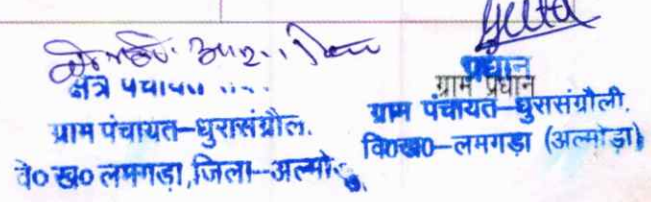 Geeta
क्षेत्र पंचायत
ग्राम पंचायत–धुरासंग्रौल.
वि० ख० लमगड़ा, जिला–अल्मो
प्रधान
ग्राम प्रधान
ग्राम पंचायत–धुरासंग्रौली.
वि०ख०–लमगड़ा (अल्मोड़ा)